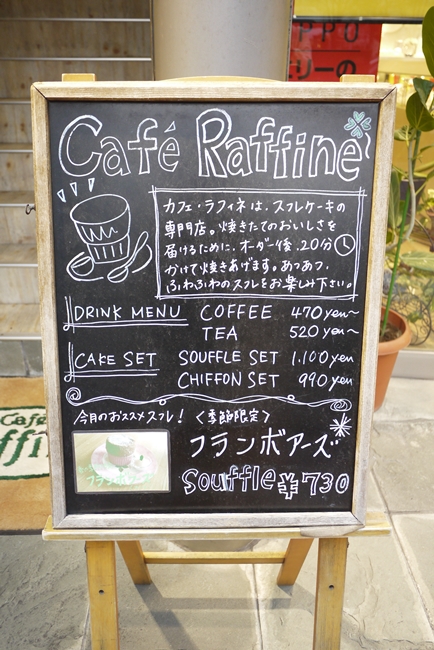 PPO
リーの
Café Raffine
カフェ・ラフィネは、スフレケーキの
専門店。焼きたてのおいしさを
届けるために、オーダー後、20分
かけて焼きあげます。あつあつ、
ふわふわのスフレをお楽しみ下さい。
DRINK MENU COFFEE 470 yen~
TEA 520 yen~
CAKE SET SOUFFLE SET 1,100 yen
CHIFFON SET 990 yen
今月のおススメスフレ! <季節限定>
フランボアーズ
Souffle ¥730
フランボワーズ
Café
ffin